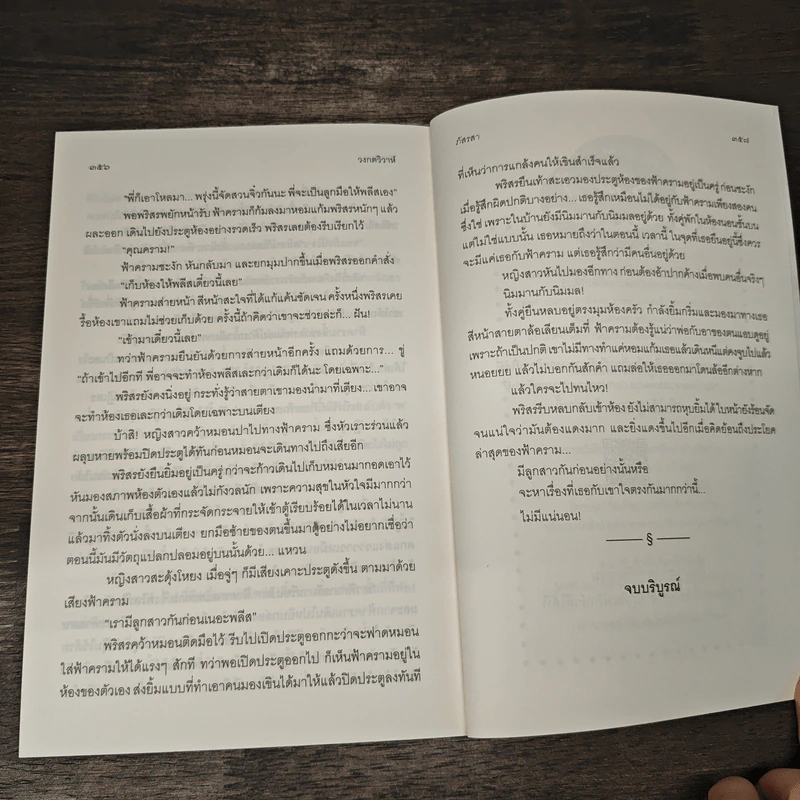 ๓๕๖
วงกตวิวาห์
"พี่ก็เอาโหลมา... พรุ่งนี้จัดสวนจิ๋วกันนะ พี่จะเป็นลูกมือให้พลีสเอง"
พอพริสรพยักหน้ารับ ฟ้าครามก็ก้มลงมาหอมแก้มพริสรหนักๆ แล้ว
ผละออก เดินไปยังประตูห้องอย่างรวดเร็ว พริสรเลยต้องรีบเรียกไว้
"คุณคราม!"
ฟ้าครามชะงัก หันกลับมา และยกมุมปากขึ้นเมื่อพริสรออกคำสั่ง
"เก็บห้องให้พลีสเดี๋ยวนี้เลย"
ฟ้าครามส่ายหน้า สีหน้าสะใจที่ได้แก้แค้นชัดเจน ครั้งหนึ่งพริสรเคย
รื้อห้องเขาแถมไม่ช่วยเก็บด้วย ครั้งนี้ถ้าคิดว่าเขาจะช่วยล่ะก็... ฝัน!
"เข้ามาเดี๋ยวนี้เลย"
ทว่าฟ้าครามยืนยันด้วยการส่ายหน้าอีกครั้ง แถมด้วยการ... ขู่
"ถ้าเข้าไปอีกที พี่อาจจะทำห้องพลีสเละกว่าเดิมก็ได้นะ โดยเฉพาะ..."
พริสรยังคงนิ่งอยู่ กระทั่งรู้ว่าสายตาเขามองนำมาที่เตียง... เขาอาจ
จะทำห้องเธอเละกว่าเดิมโดยเฉพาะบนเตียง
บ้าสิ! หญิงสาวคว้าหมอนปาไปทางฟ้าคราม ซึ่งหัวเราะร่วนแล้ว
ผลุบหายพร้อมปิดประตูได้ทันก่อนหมอนจะเดินทางไปถึงเสียอีก
พริสรยังยืนยิ้มอยู่เป็นครู่ กว่าจะก้าวเดินไปเก็บหมอนมากอดเอาไว้
หันมองสภาพห้องตัวเองแล้วไม่กังวลนัก เพราะความสุขในหัวใจมีมากกว่า
จากนั้นเดินเก็บเสื้อผ้าที่กระจัดกระจายให้เข้าตู้เรียบร้อยได้ในเวลาไม่นาน
แล้วมาทิ้งตัวนั่งลงบนเตียง ยกมือซ้ายของตนขึ้นมาดูอย่างไม่อยากเชื่อว่า
ตอนนี้มันมีวัตถุแปลกปลอมอยู่บนนั้นด้วย... แหวน
หญิงสาวสะดุ้งโหยง เมื่อจู่ๆ ก็มีเสียงเคาะประตูดังขึ้น ตามมาด้วย
เสียงฟ้าคราม
"เรามีลูกสาวกันก่อนเนอะพลีส"
พริสรคว้าหมอนติดมือไว้ รีบไปเปิดประตูออกกะว่าจะฟาดหมอน
ใส่ฟ้าครามให้ได้แรงๆ สักที ทว่าพอเปิดประตูออกไป ก็เห็นฟ้าครามอยู่ใน
ห้องของตัวเอง ส่งยิ้มแบบที่ทำเอาคนมองเขินได้มาให้แล้วปิดประตูลงทันที
ภัสรสา
๓๕๗
ที่เห็นว่าการแกล้งคนให้เขินสำเร็จแล้ว
พริสรยืนเท้าสะเอวมองประตูห้องของฟ้าครามอยู่เป็นครู่ ก่อนชะงัก
เมื่อรู้สึกผิดปกติบางอย่าง... เธอรู้สึกเหมือนไม่ได้อยู่กับฟ้าครามเพียงสองคน
ซึ่งใช่ เพราะในบ้านยังมีนิมมานกับนิมมลอยู่ด้วย ทั้งคู่พักในห้องนอนชั้นบน
แต่ไม่ใช่แบบนั้น เธอหมายถึงว่าในตอนนี้ เวลานี้ ในจุดที่เธอยืนอยู่นี้ซึ่งควร
จะมีแค่เธอกับฟ้าคราม แต่เธอรู้สึกว่ามีคนอื่นอยู่ด้วย
หญิงสาวหันไปมองอีกทาง ก่อนต้องอ้าปากค้างเมื่อพบคนอื่นจริงๆ
นิมมานกับนิมมล!
ทั้งคู่ยืนหลบอยู่ตรงมุมห้องครัว กำลังยิ้มกริ่มและมองมาทางเธอ
สีหน้าสายตาล้อเลียนเต็มที่ ฟ้าครามต้องรู้แน่ว่าพ่อกับอาของตนแอบดูอยู่
เพราะถ้าเป็นปกติ เขาไม่มีทางทำแค่หอมแก้มเธอแล้วเดินหนีแต่คงจูบไปแล้ว
หนอยยย แล้วไม่บอกกันสักคำ แถมล่อให้เธอออกมาโดนล้ออีกต่างหาก
แล้วใครจะไปทนไหว!
พริสรรีบหลบกลับเข้าห้อง ยังไม่สามารถหุบยิ้มได้ ใบหน้ายังร้อนจัด
จนแน่ใจว่ามันต้องแดงมาก และยิ่งแดงขึ้นไปอีกเมื่อคิดย้อนถึงประโยค
ล่าสุดของฟ้าคราม...
มีลูกสาวกันก่อนอย่างนั้นหรือ
จะหาเรื่องที่เธอกับเขาใจตรงกันมากกว่านี้...
ไม่มีแน่นอน!
§
จบบริบูรณ์